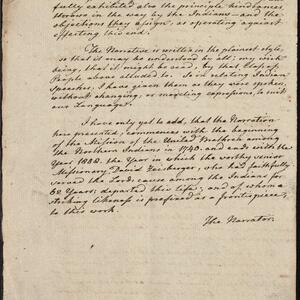 fully exhibited also the principle hindrances
thrown in the way by the Indians — and the
objections they assign, as operating against
effecting this end.
The Narrative is written in the plainest style,
so that it may be understood by all; my wish
being, that it might be read, by that Class of
People above alluded to. In relating Indian
Speeches, I have given them as they were spoken,
without changing, or modeling expressions, to suit
our Language.
I have only yet to add, that the Narration
here presented, commences with the beginning
of the Mission of the United Brethren among
the Northern Indians in 1740. and ends with the
Year 1808. the Year in which the worthy senior
Missionary, David Zeisberger, who had faithfully
served the Lords cause among the Indians for
62 Years; departed this life; and of whom a
striking likeness is prefixed as a frontispiece,
to this work.
The Narrator.